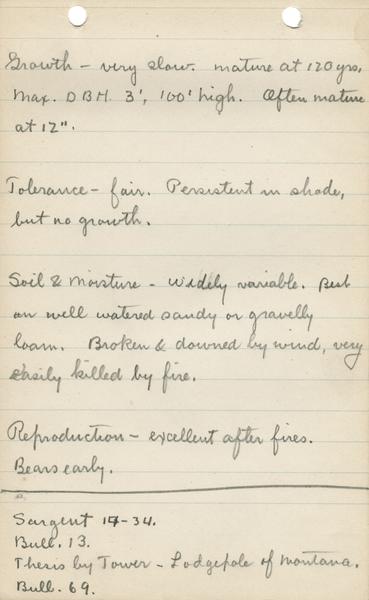 Growth - very slow. mature at 120 yrs.
Max. DBH. 3', 100' high. Often mature
at 12".
Tolerance - fair. Persistent in shade,
but no growth.
Soil & Moisture - Widely variable. Best
on well watered sandy or gravelly
loam. Broken & downed by wind, very
easily killed by fire.
Reproduction - excellent after fires.
Bears early.
Sargent 14-34.
Bull. 13.
Thesis by Tower - Lodgepole of Montana.
Bull. 69.